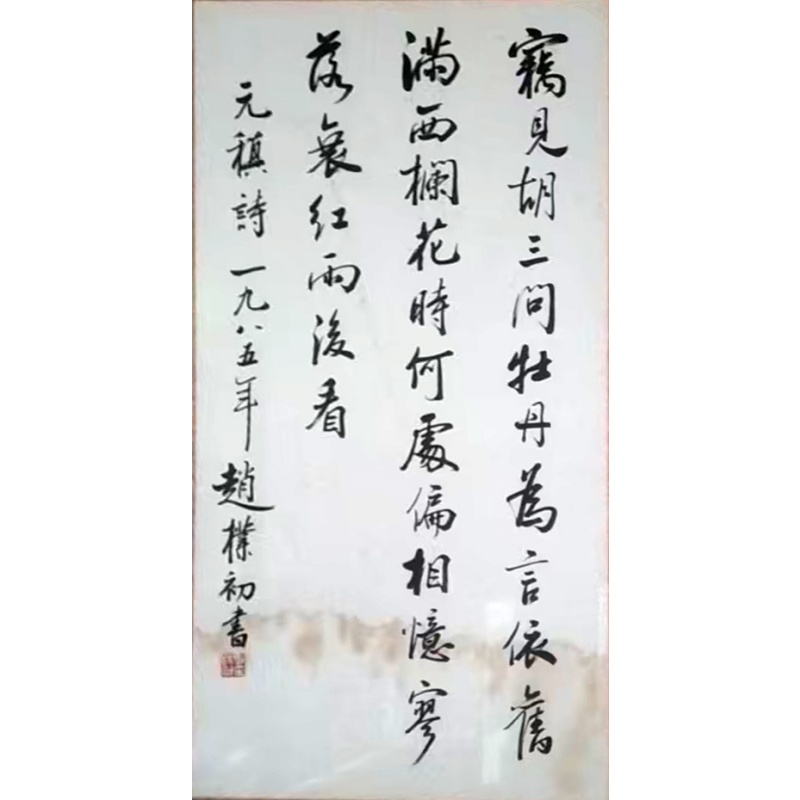 竊見胡三問牡丹為言依舊
滿西欄花時何處偏相憶寥
落衰紅雨後看
元稹詩一九八五年趙樸初書